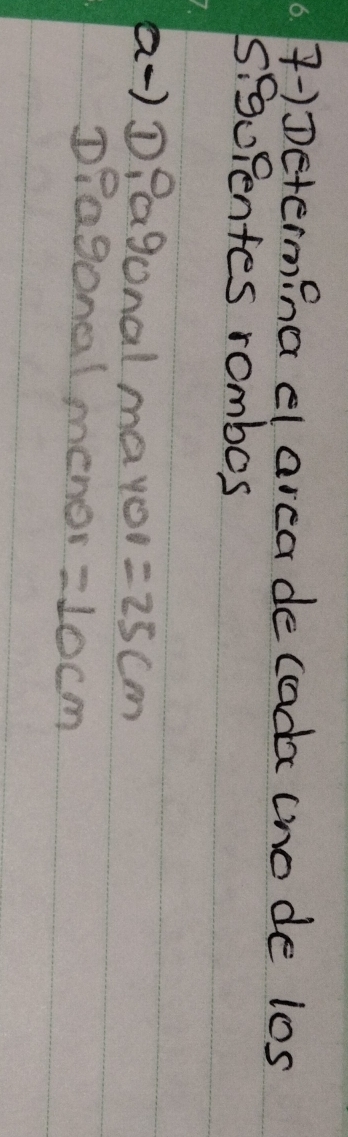 6.
7-) Determina el area de cada uno de los
siguientes rombos
7.
a-) Diagonal mayor = 25 cm
Diagonal menor = 10cm